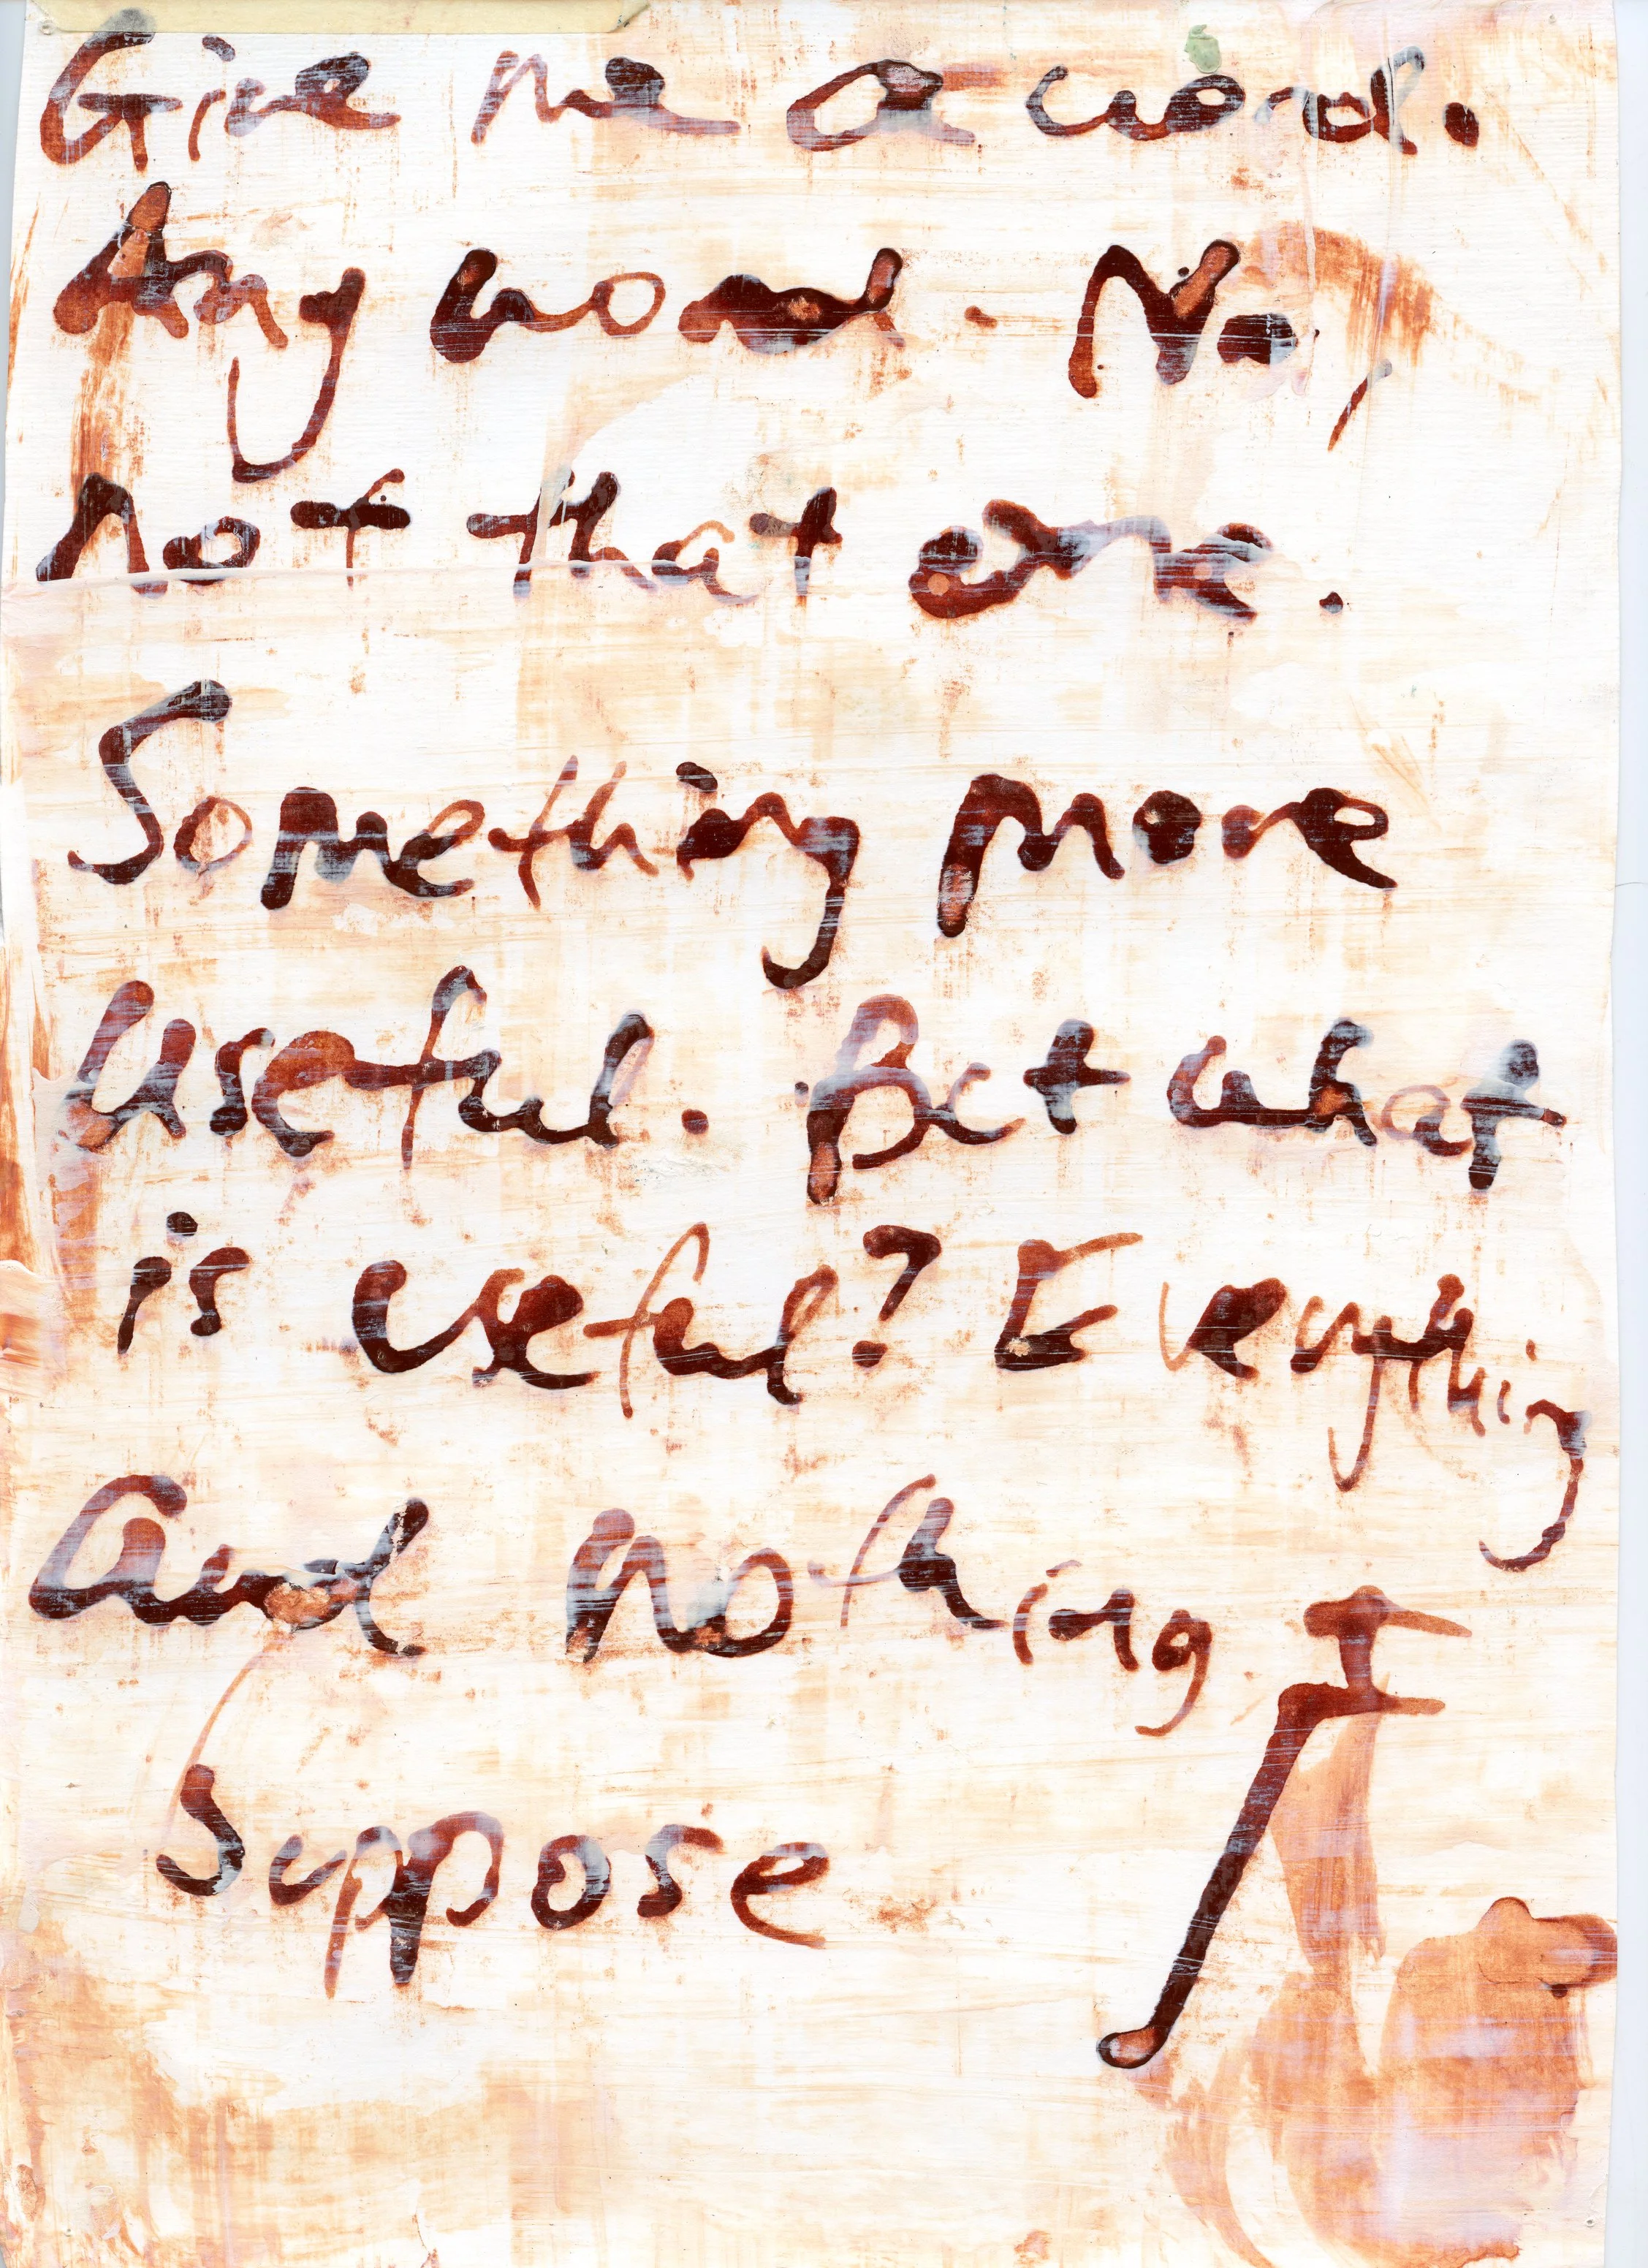 Give me a word.
Any word. No,
not that one.
Something more
useful. But what
is useful? Everything
and nothing I
Suppose